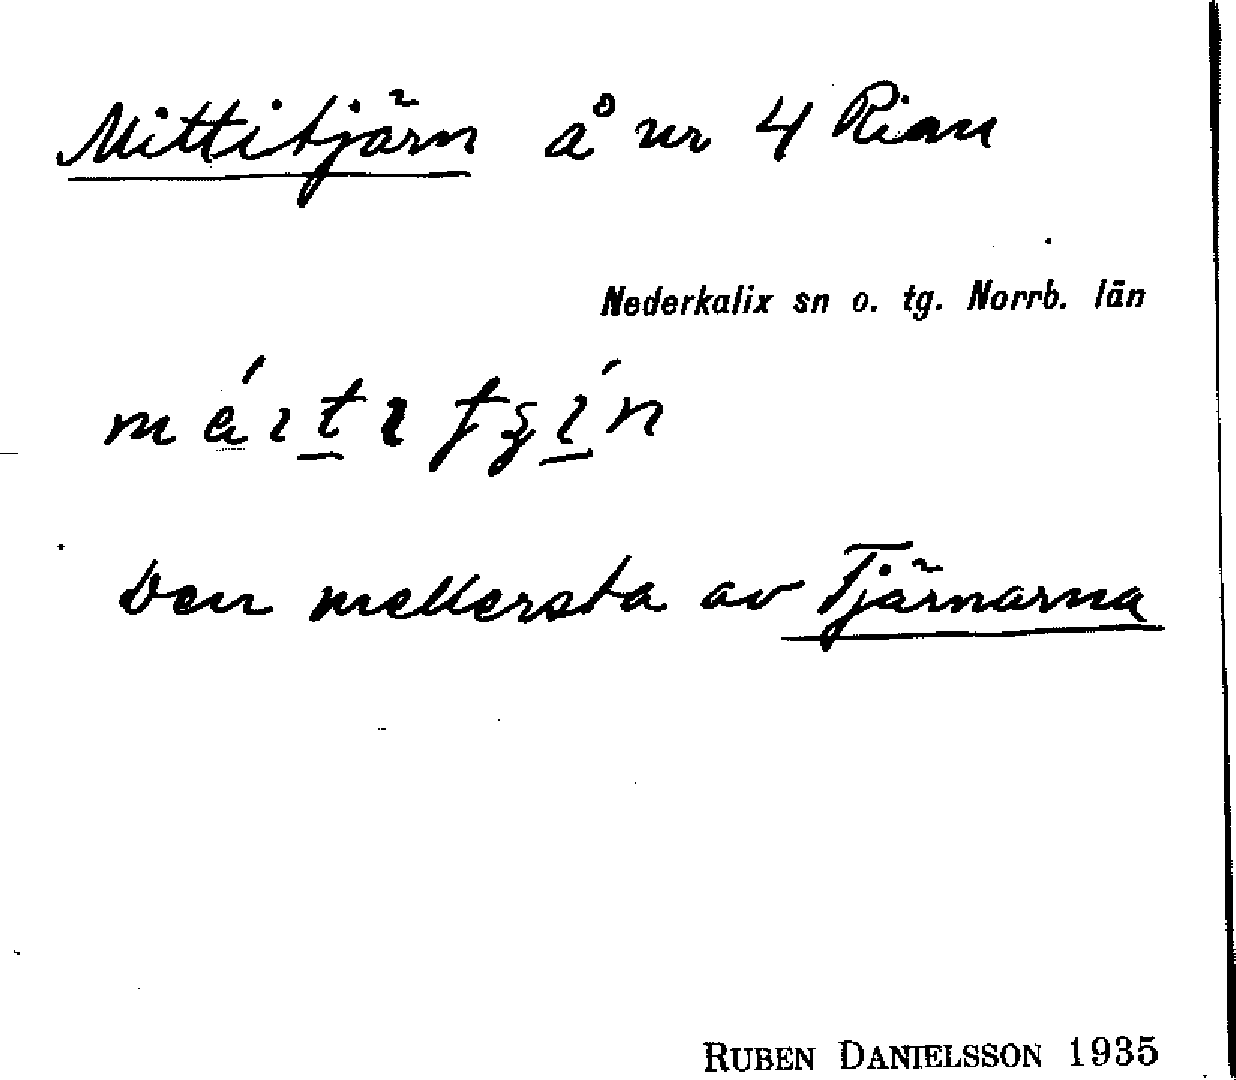 Mittitjärn å nr 4 Rian
Nederkalix sn o. tg. Norrb. län
Den mellersta av Tjärnarna
RUBEN DANIELSSON 1935